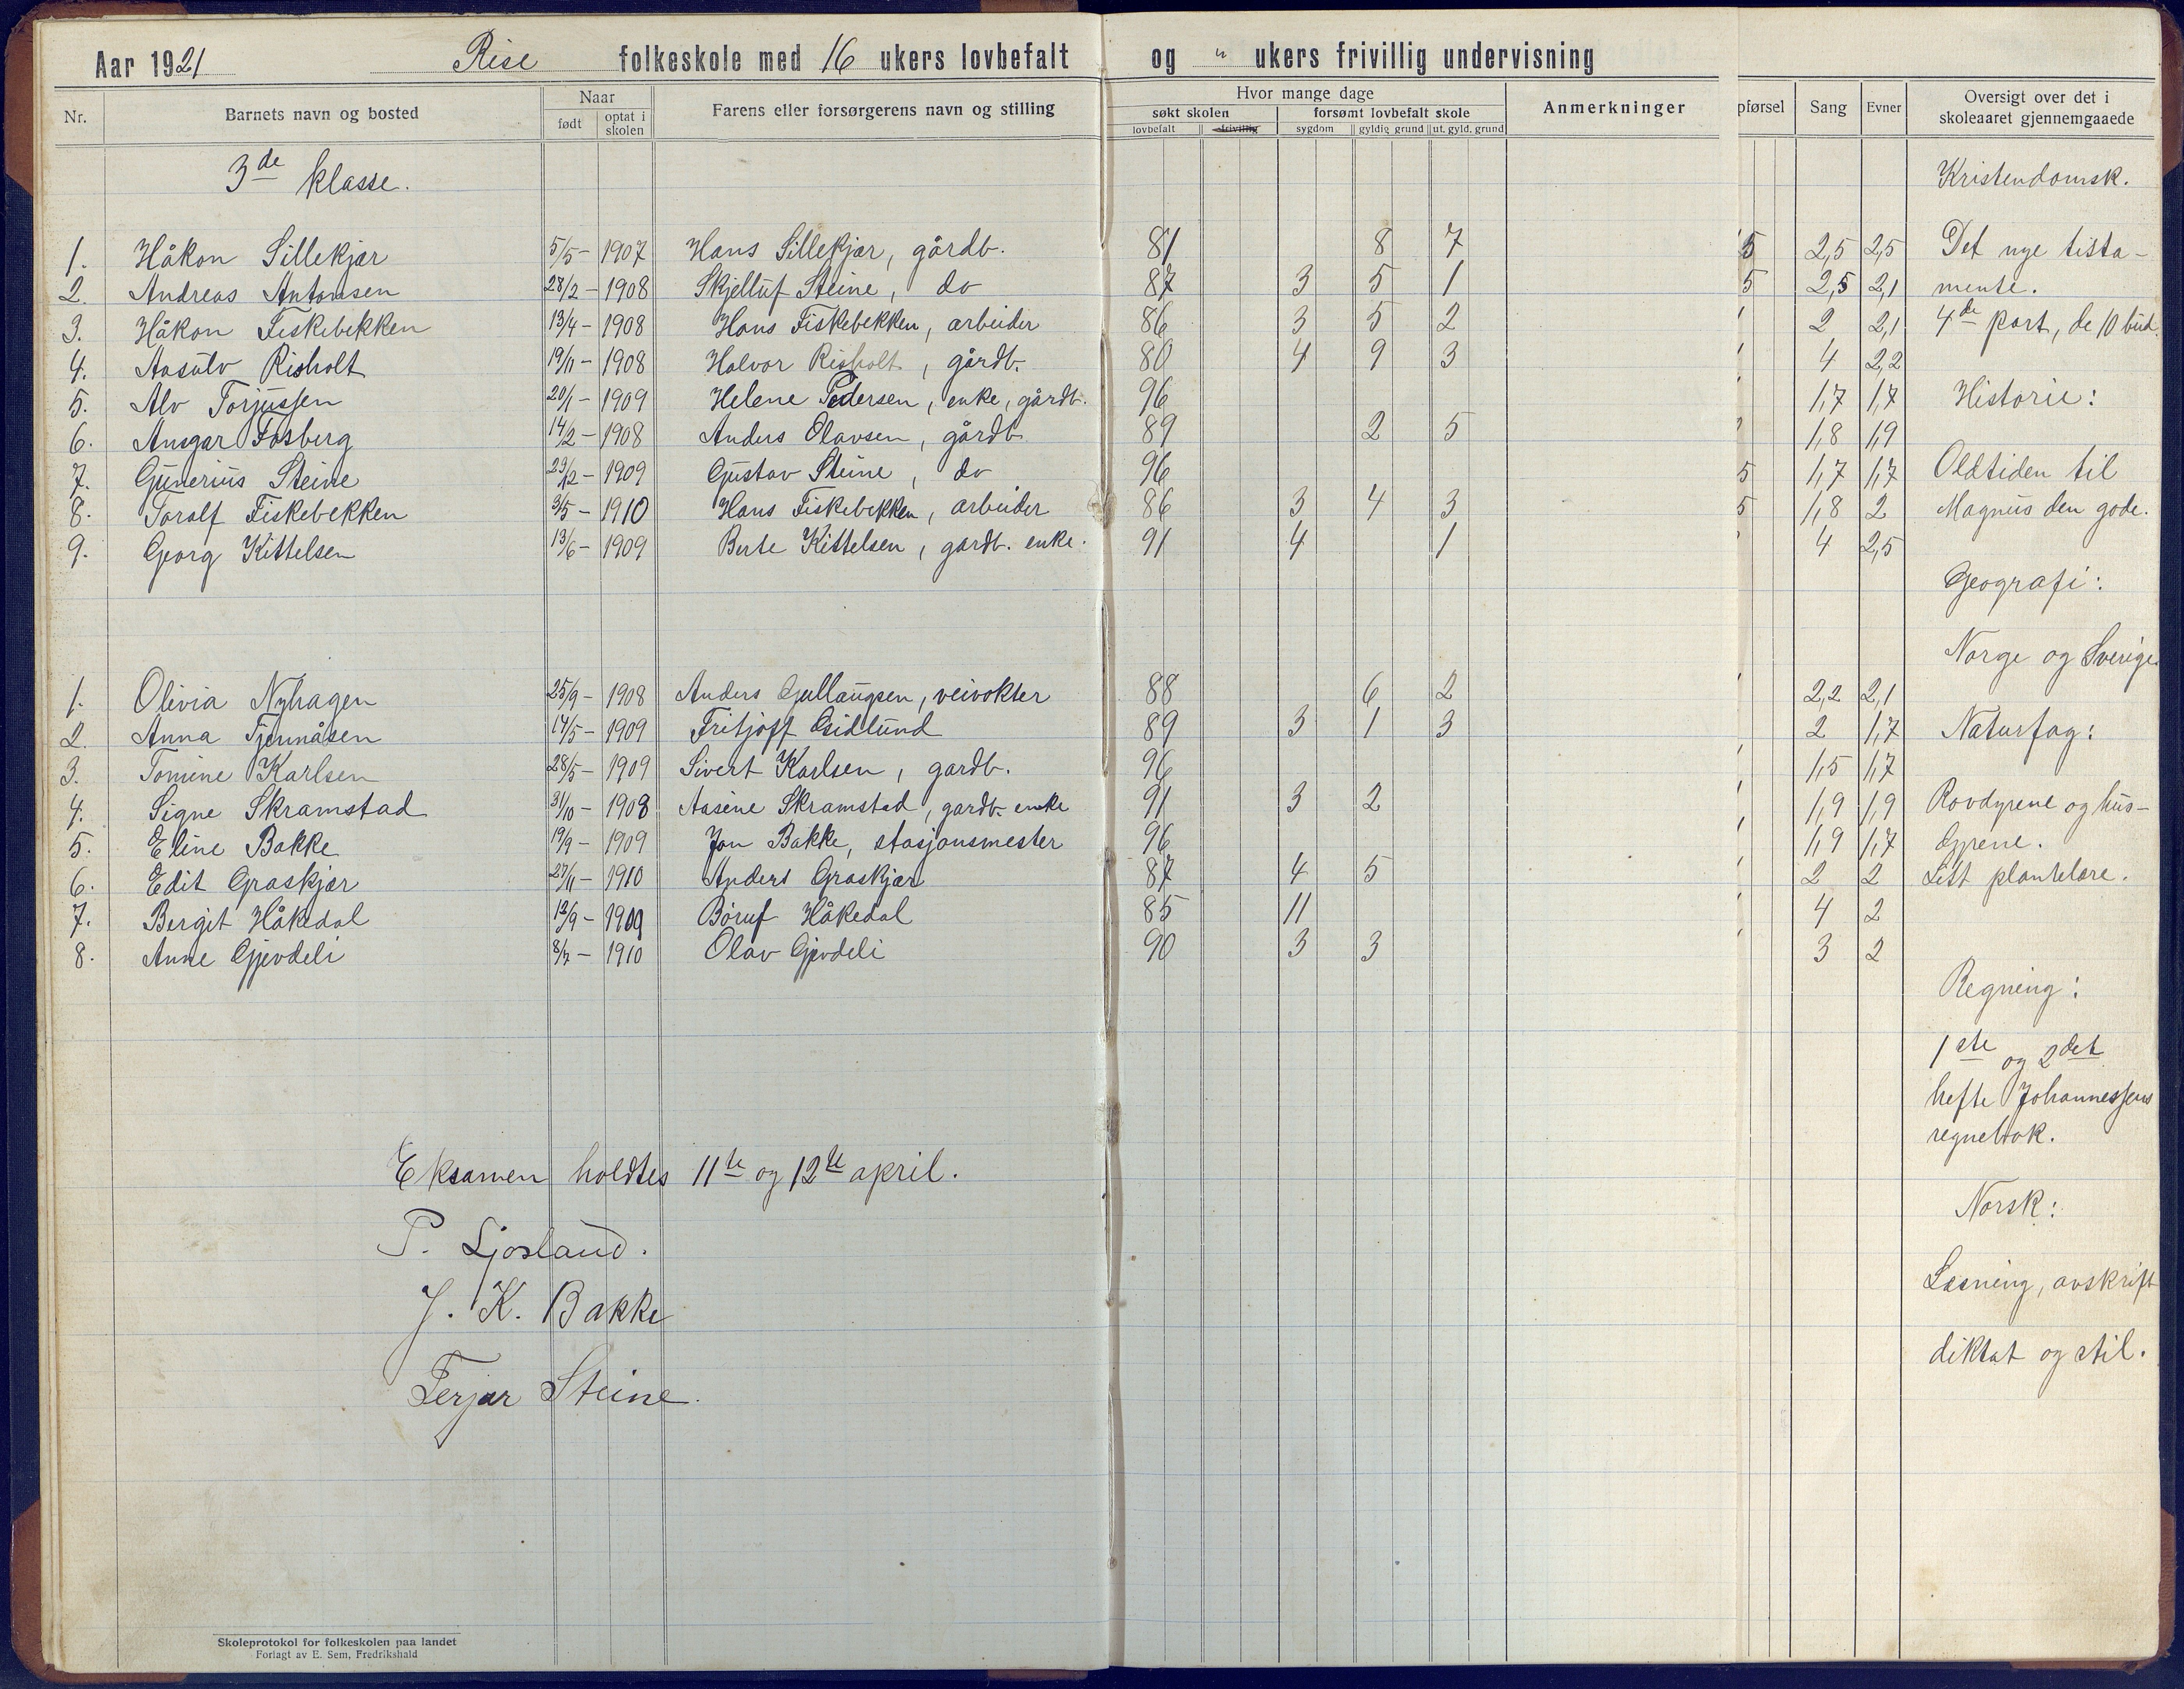 Aar 1921 Rise folkeskole med 16 ukers lovbefalt og " ukers frivillig undervisning
Nr. Barnets navn og bosted Naar født optat i skolen Farens eller forsørgerens navn og stilling Hvor mange dage søkt skolen lovbefalt frivillig forsømt lovbefalt skole sygdom gyldig grund ut. gyld. grund Anmerkninger pførsel Sang Evner Oversigt over det i skoleaaret gjennemgaaede
3de klasse. Kristendomsk.
1. Håkon Sillekjær 5/5 - 1907 Hans Sillekjær, gårdb. 81 8 7 5 2,5 2,5 Det nye tista-
2. Andreas Antonsen 28/2 - 1908 Skjelluf Steine, do 87 3 5 1 5 2,5 2,1 mente.
3. Håkon Fiskebekken 13/4 - 1908 Hans Fiskebekken, arbeider 86 3 5 2 2 2,1 4de part, de 10 bud.
4. Aasulv Risholt 19/11 - 1908 Halvor Risholt, gårdb. 80 4 9 3 4 2,2
5. Alv Torjussen 20/1 - 1909 Helene Pedersen, enke, gårdb. 96 1,7 1,7 Historie:
6. Ansgar Fosberg 14/2 - 1908 Anders Olavsen, gårdb. 89 2 5 1,8 1,9
7. Gunerius Steine 29/12 - 1909 Gustav Steine, do 96 5 1,7 1,7 Oldtiden til
8. Toralf Fiskebekken 3/5 - 1910 Hans Fiskebekken, arbeider 86 3 4 3 5 1,8 2 Magnus den gode.
9. Georg Kittelsen 13/6 - 1909 Berte Kittelsen, gardb. enke. 91 4 1 4 2,5
Geografi:
Norge og Sverige
1. Olivia Nyhagen 25/9 - 1908 Anders Gullaugsen, veivokter 88 6 2 2,2 2,1
2. Anna Tjennåsen 14/5 - 1909 Fritjoff 89 3 1 3 2 1,7 Naturfag:
3. Tomine Karlsen 28/5 - 1909 Sivert Karlsen, gardb. 96 1,5 1,7
4. Signe Skramstad 31/10 - 1908 Aasene Skramstad, gardb. enke 91 3 2 1,9 1,9 Rovdyrene og hus-
5. Eline Bakke 19/9 - 1909 Jon Bakke, stasjonsmester 96 1,9 1,7 dyrene.
6. Edit Graskjær 27/11 - 1910 Anders Graskjær 87 4 5 2 2 Litt plantelære.
7. Bergit Håkedal 12/9 - 1909 Håkedal 85 11 4 2
8. Anne Gjevdeli 8/7 - 1910 Olav Gjevdeli 90 3 3 3 2
Regning:
1ste og 2det
hefte Johannessens
regnebok.
Eksamen holdtes 11te og 12te april.
Norsk:
P. Ljosland.
Læsning, avskrift
J. K. Bakke
diktat og stil.
Terjar Steine.
Skoleprotokol for folkeskolen paa landet
Forlagt av E. Sem, Fredrikshald